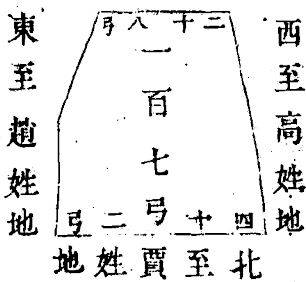 西至高姓地
二十八弓
一百七弓
四十二弓
北至賈姓地
東至趙姓地